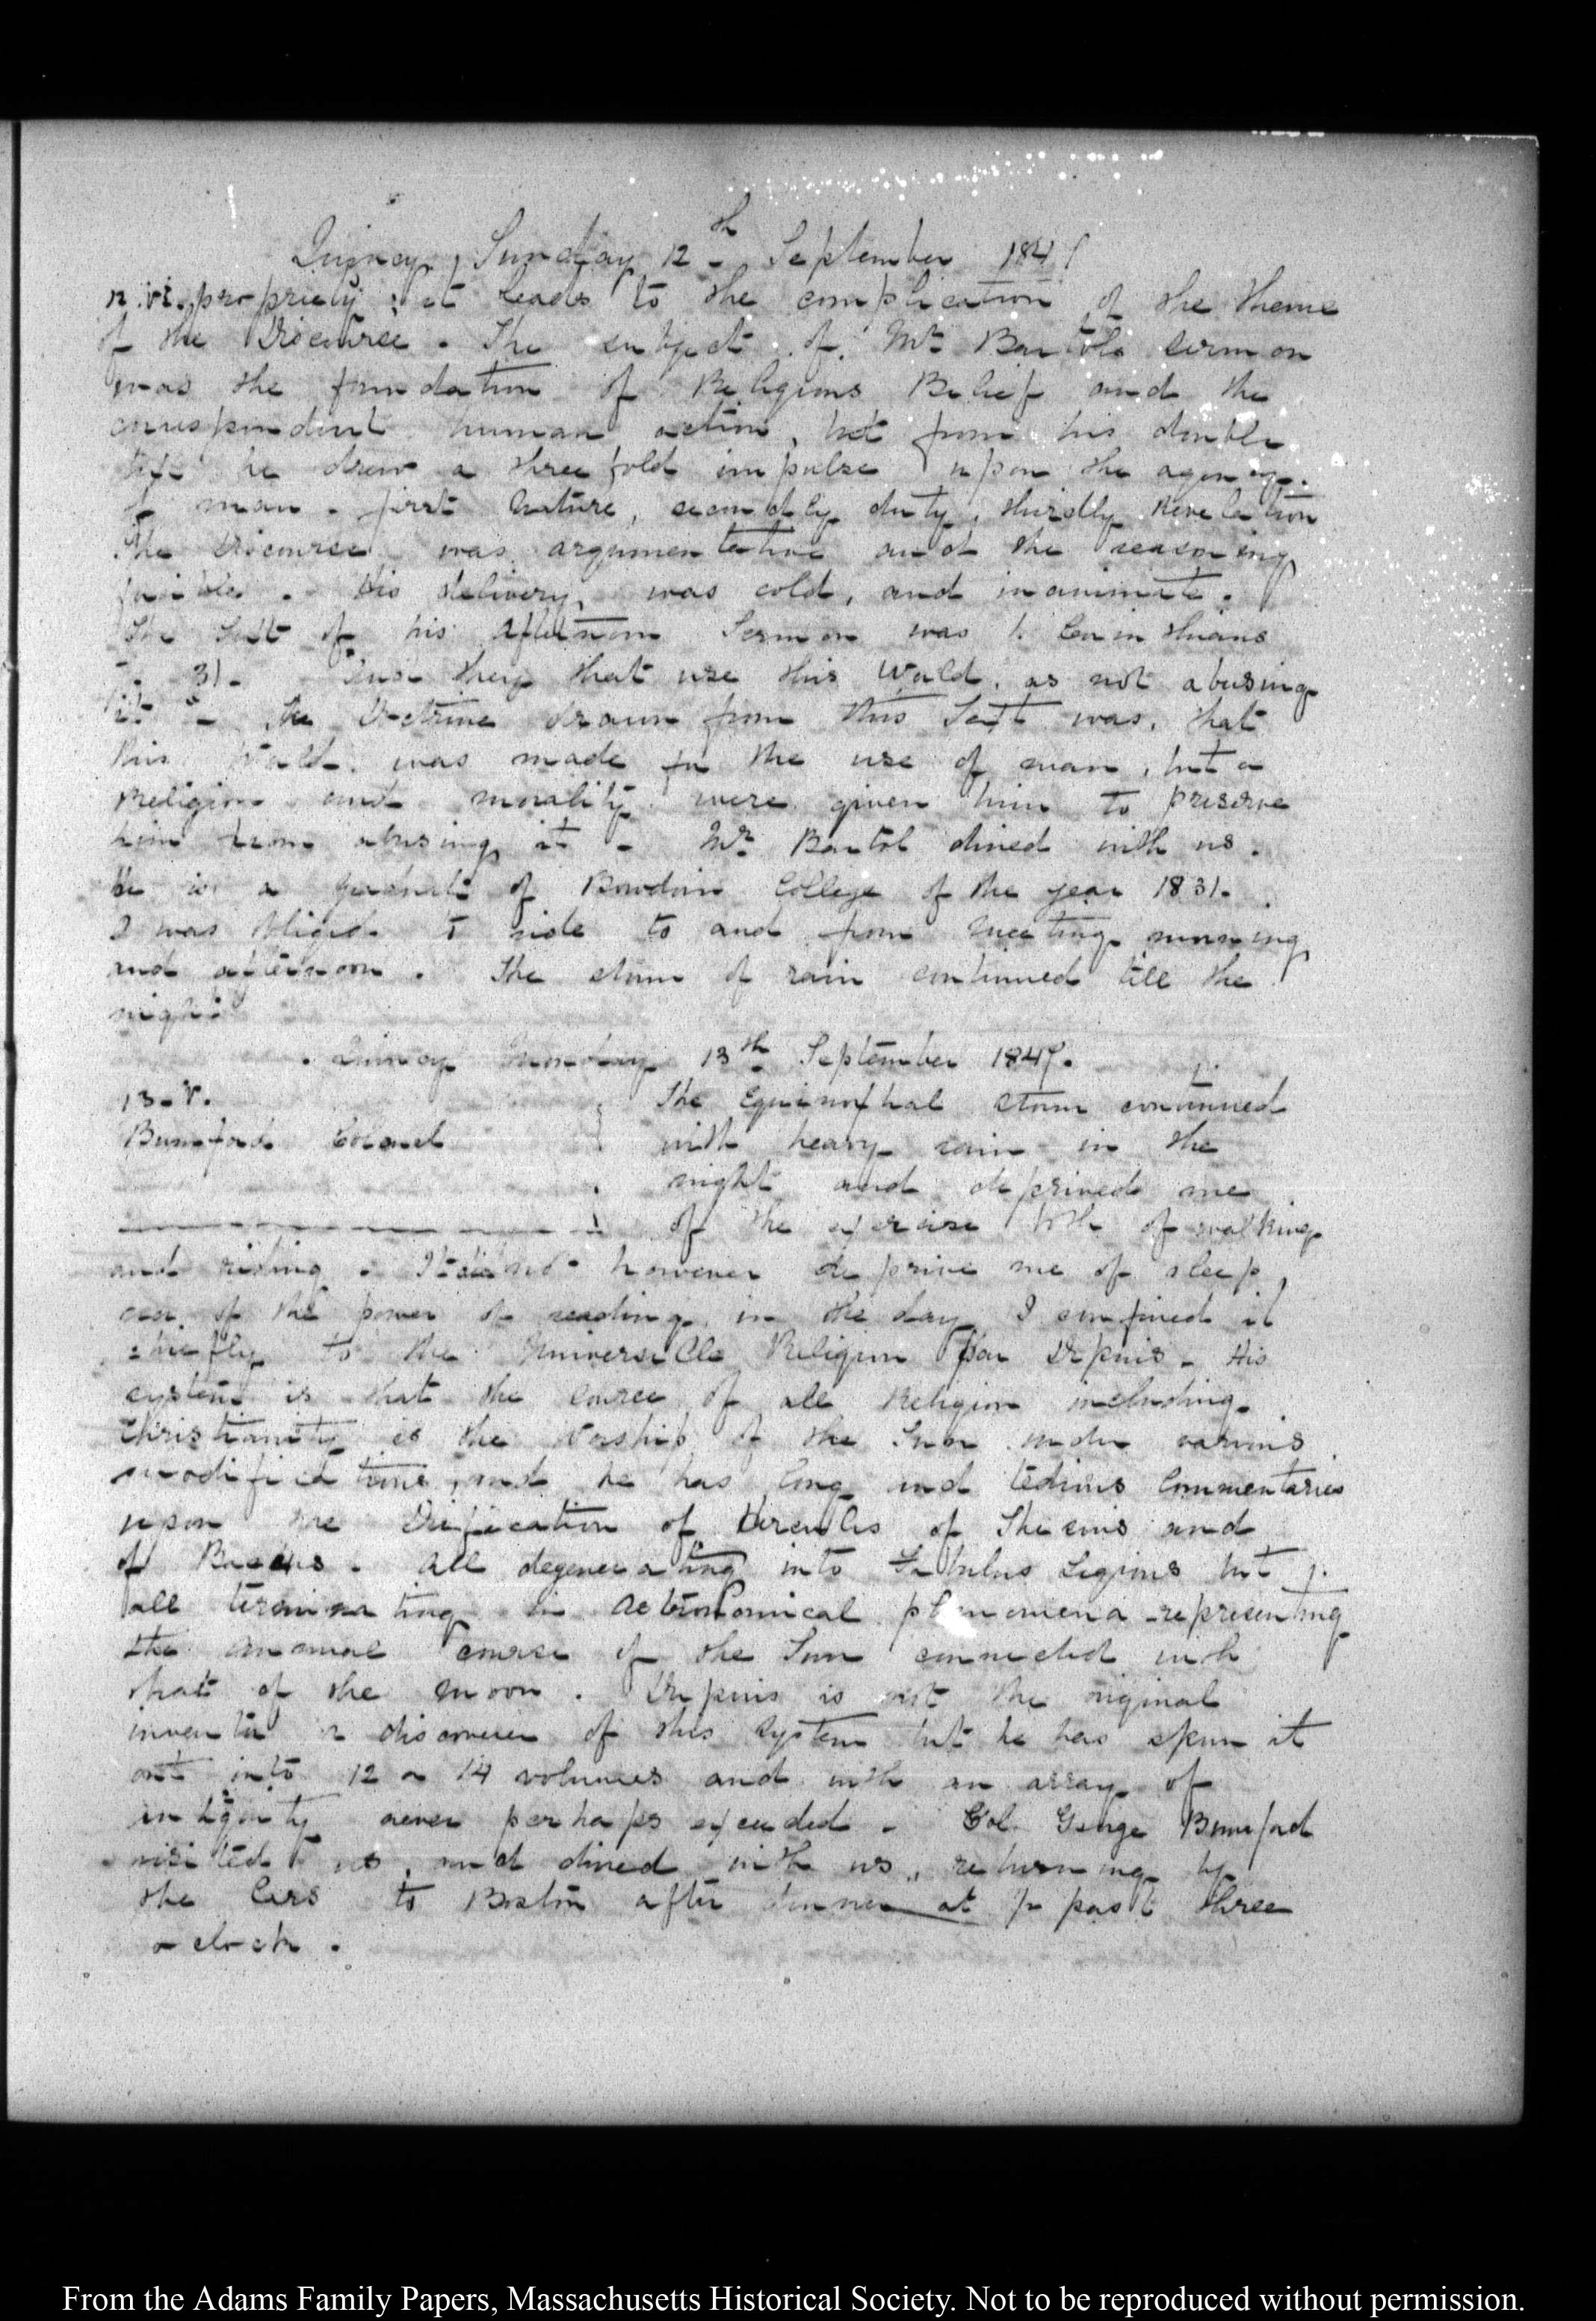 Quincy, Sunday 12th September 1847
12. VI. propriety; it leads to the complication of the theme
of the Discourse. The subject of Mr Bartol's sermon
was the foundation of Religious Belief and the
correspondent human action, but from his double
text he drew a three fold impulse upon the agency
of man. first Nature, secondly duty, thirdly Revelation
The Discourse was argumentative and the reasoning
His delivery, was cold, and inanimate.
The Text of his afternoon Sermon was 1. Corinthians
31. And they that use this World, as not abusing
it. The Doctrine drawn from this Text was, that
this World, was made for the use of man, but a
Religion and morality were given him to preserve
him from abusing it. Mr Bartol dined with us.
He is a graduate of Bowdoin College of the year 1831.
I was obliged to ride to and from Meeting morning
and afternoon. The storm of rain continued till the
night
Quincy Monday 13th September 1847.
13. V.
Bumford Colonel
The Equinoxial storm continued
with heavy rain in the
night and deprived me
of the exercise both of walking
and riding. It did not however deprive me of sleep,
nor of the power of reading in the day I confined it
chiefly to the Universelle Religion par Dupuis. His
system is that the source of all Religion including
Christianity is the Worship of the Sun under various
modifications, and he has long and tedious Commentaries
upon the Deification of Hercules of Theseus and
of Bacchus. All degenerating into Fabulus Legions but
all terminating in Astronomical phenomena representing
the annual course of the Sun connected with
that of the moon. Dupuis is not the original
inventor or discoverer of this System but he has spun it
out into 12 or 14 volumes and with an array of
antiquity never perhaps exceeded. Col. George Bumford
visited us, and dined with us, returning by
the Cars to Boston after dinner at past three
o clock.
From the Adams Family Papers, Massachusetts Historical Society. Not to be reproduced without permission.